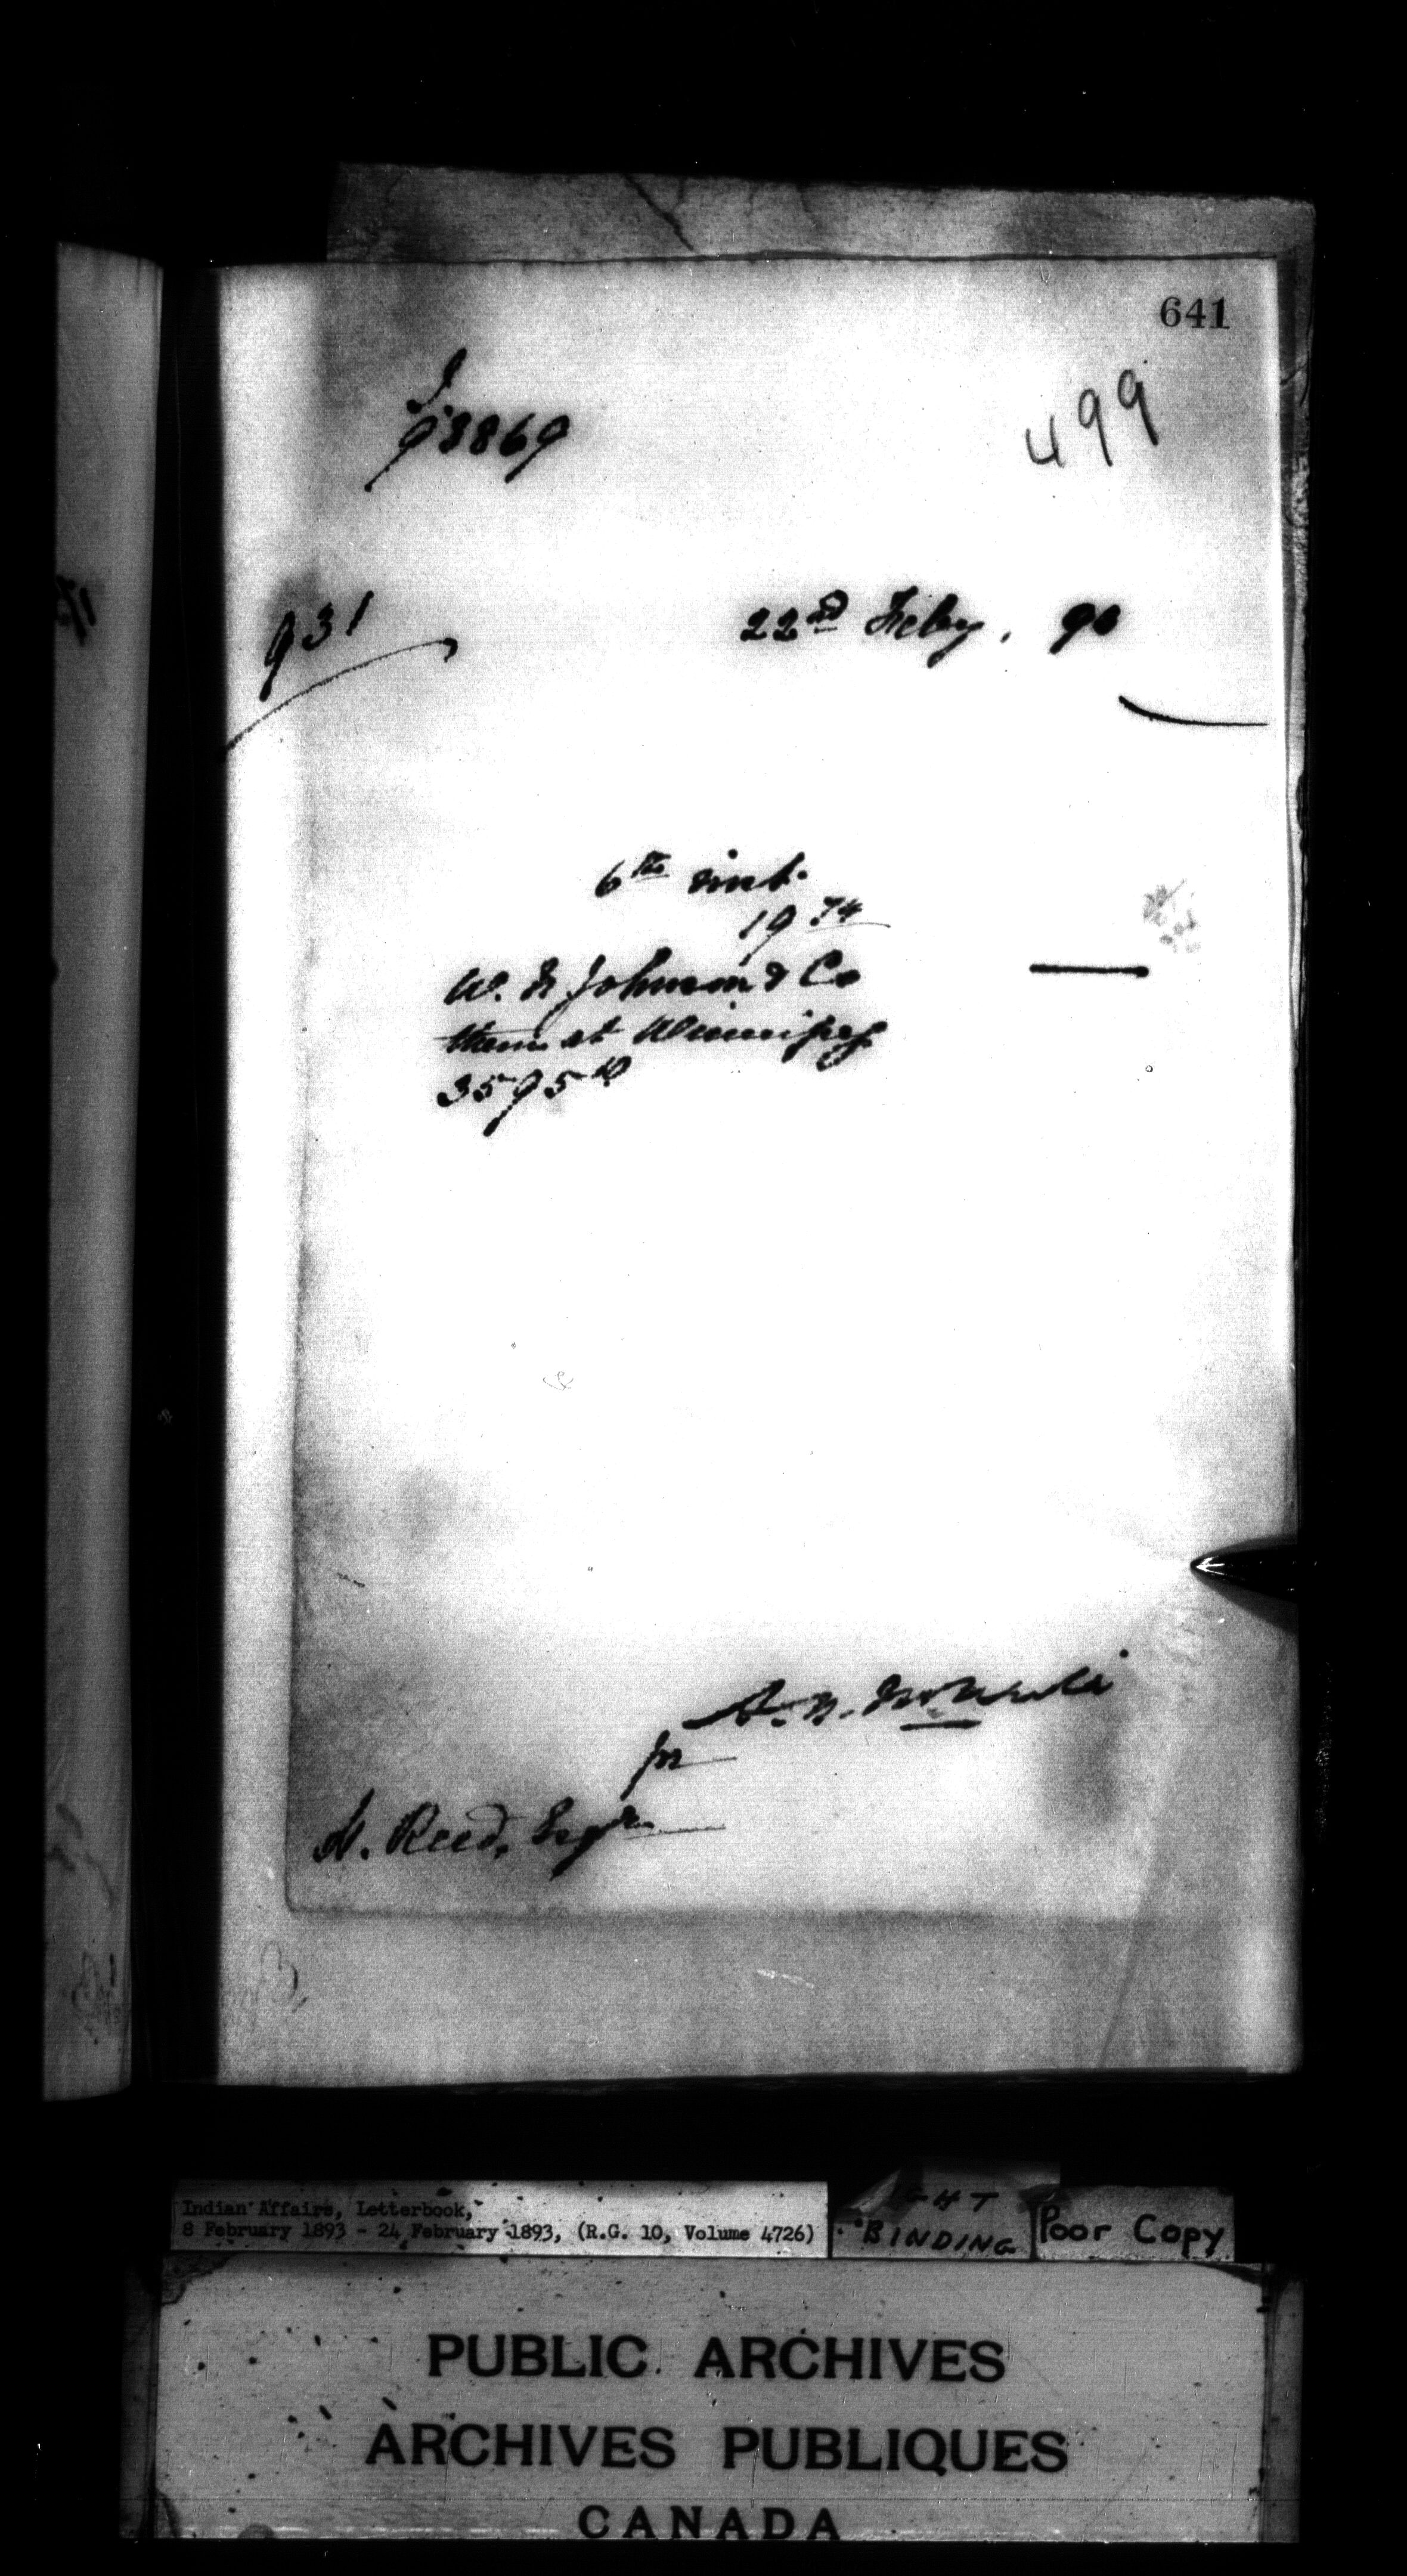 641
499
98869
931
22nd Feby, 90
6th inst.
19 74
W. H. Johnson & Co
them at Winnipeg
3595 10
for
H. Reed, Esqr.
Indian Affairs, Letterbook,
8 February 1893 - 24 February 1893, (R.G. 10, Volume 4726)
BINDING
Poor Copy
PUBLIC ARCHIVES
ARCHIVES PUBLIQUES
CANADA